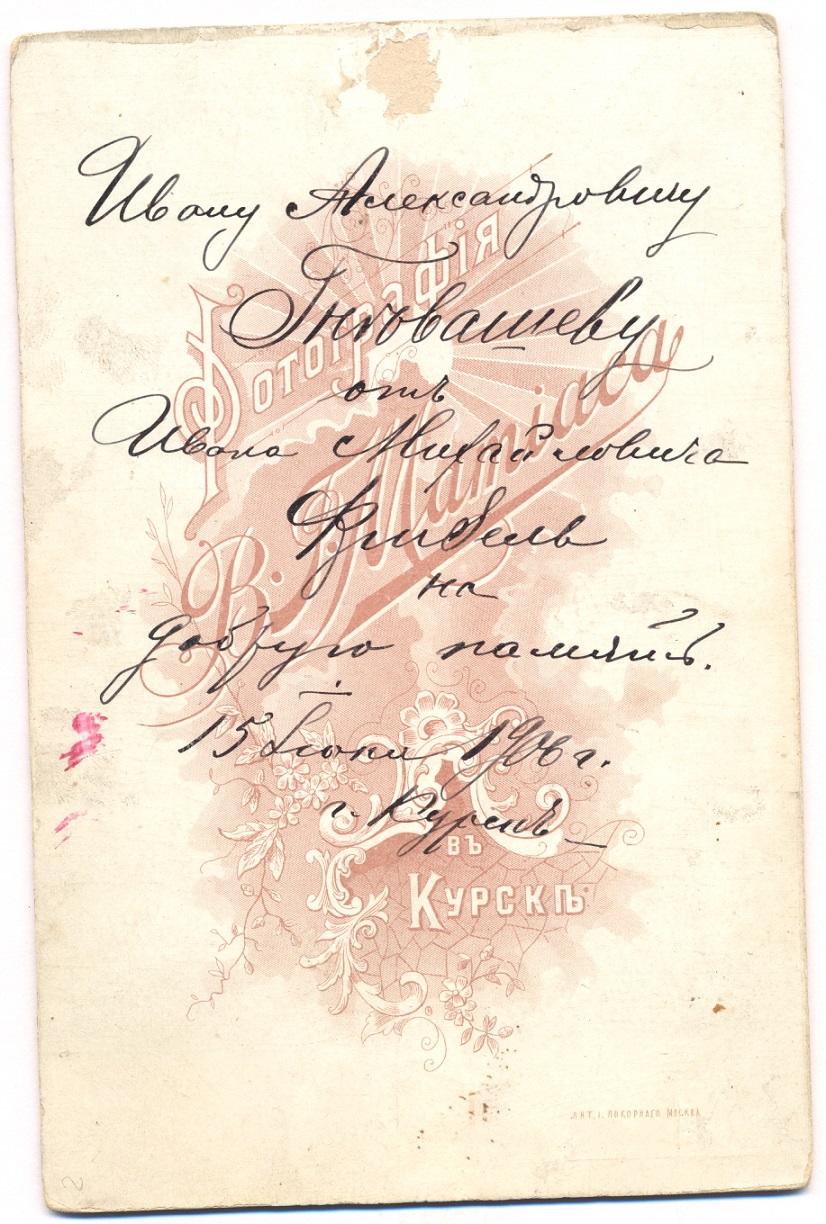 Ивану Александровичу
отъ
Ивана Михайловича
на
добрую память.
15 Iюня 1906 г.
г. Курскъ
Фотографія
В. Г. Матіаса
въ
Курскѣ
Лит. I. Покорнаго Москва